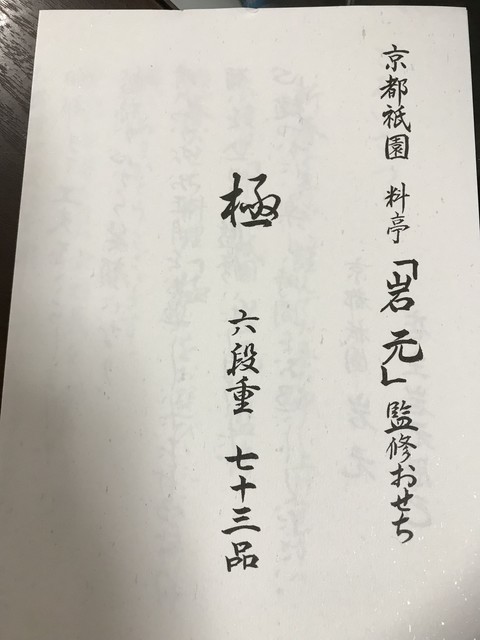 京都祇園 料亭「岩元」監修おせち
極 六段重 七十三品